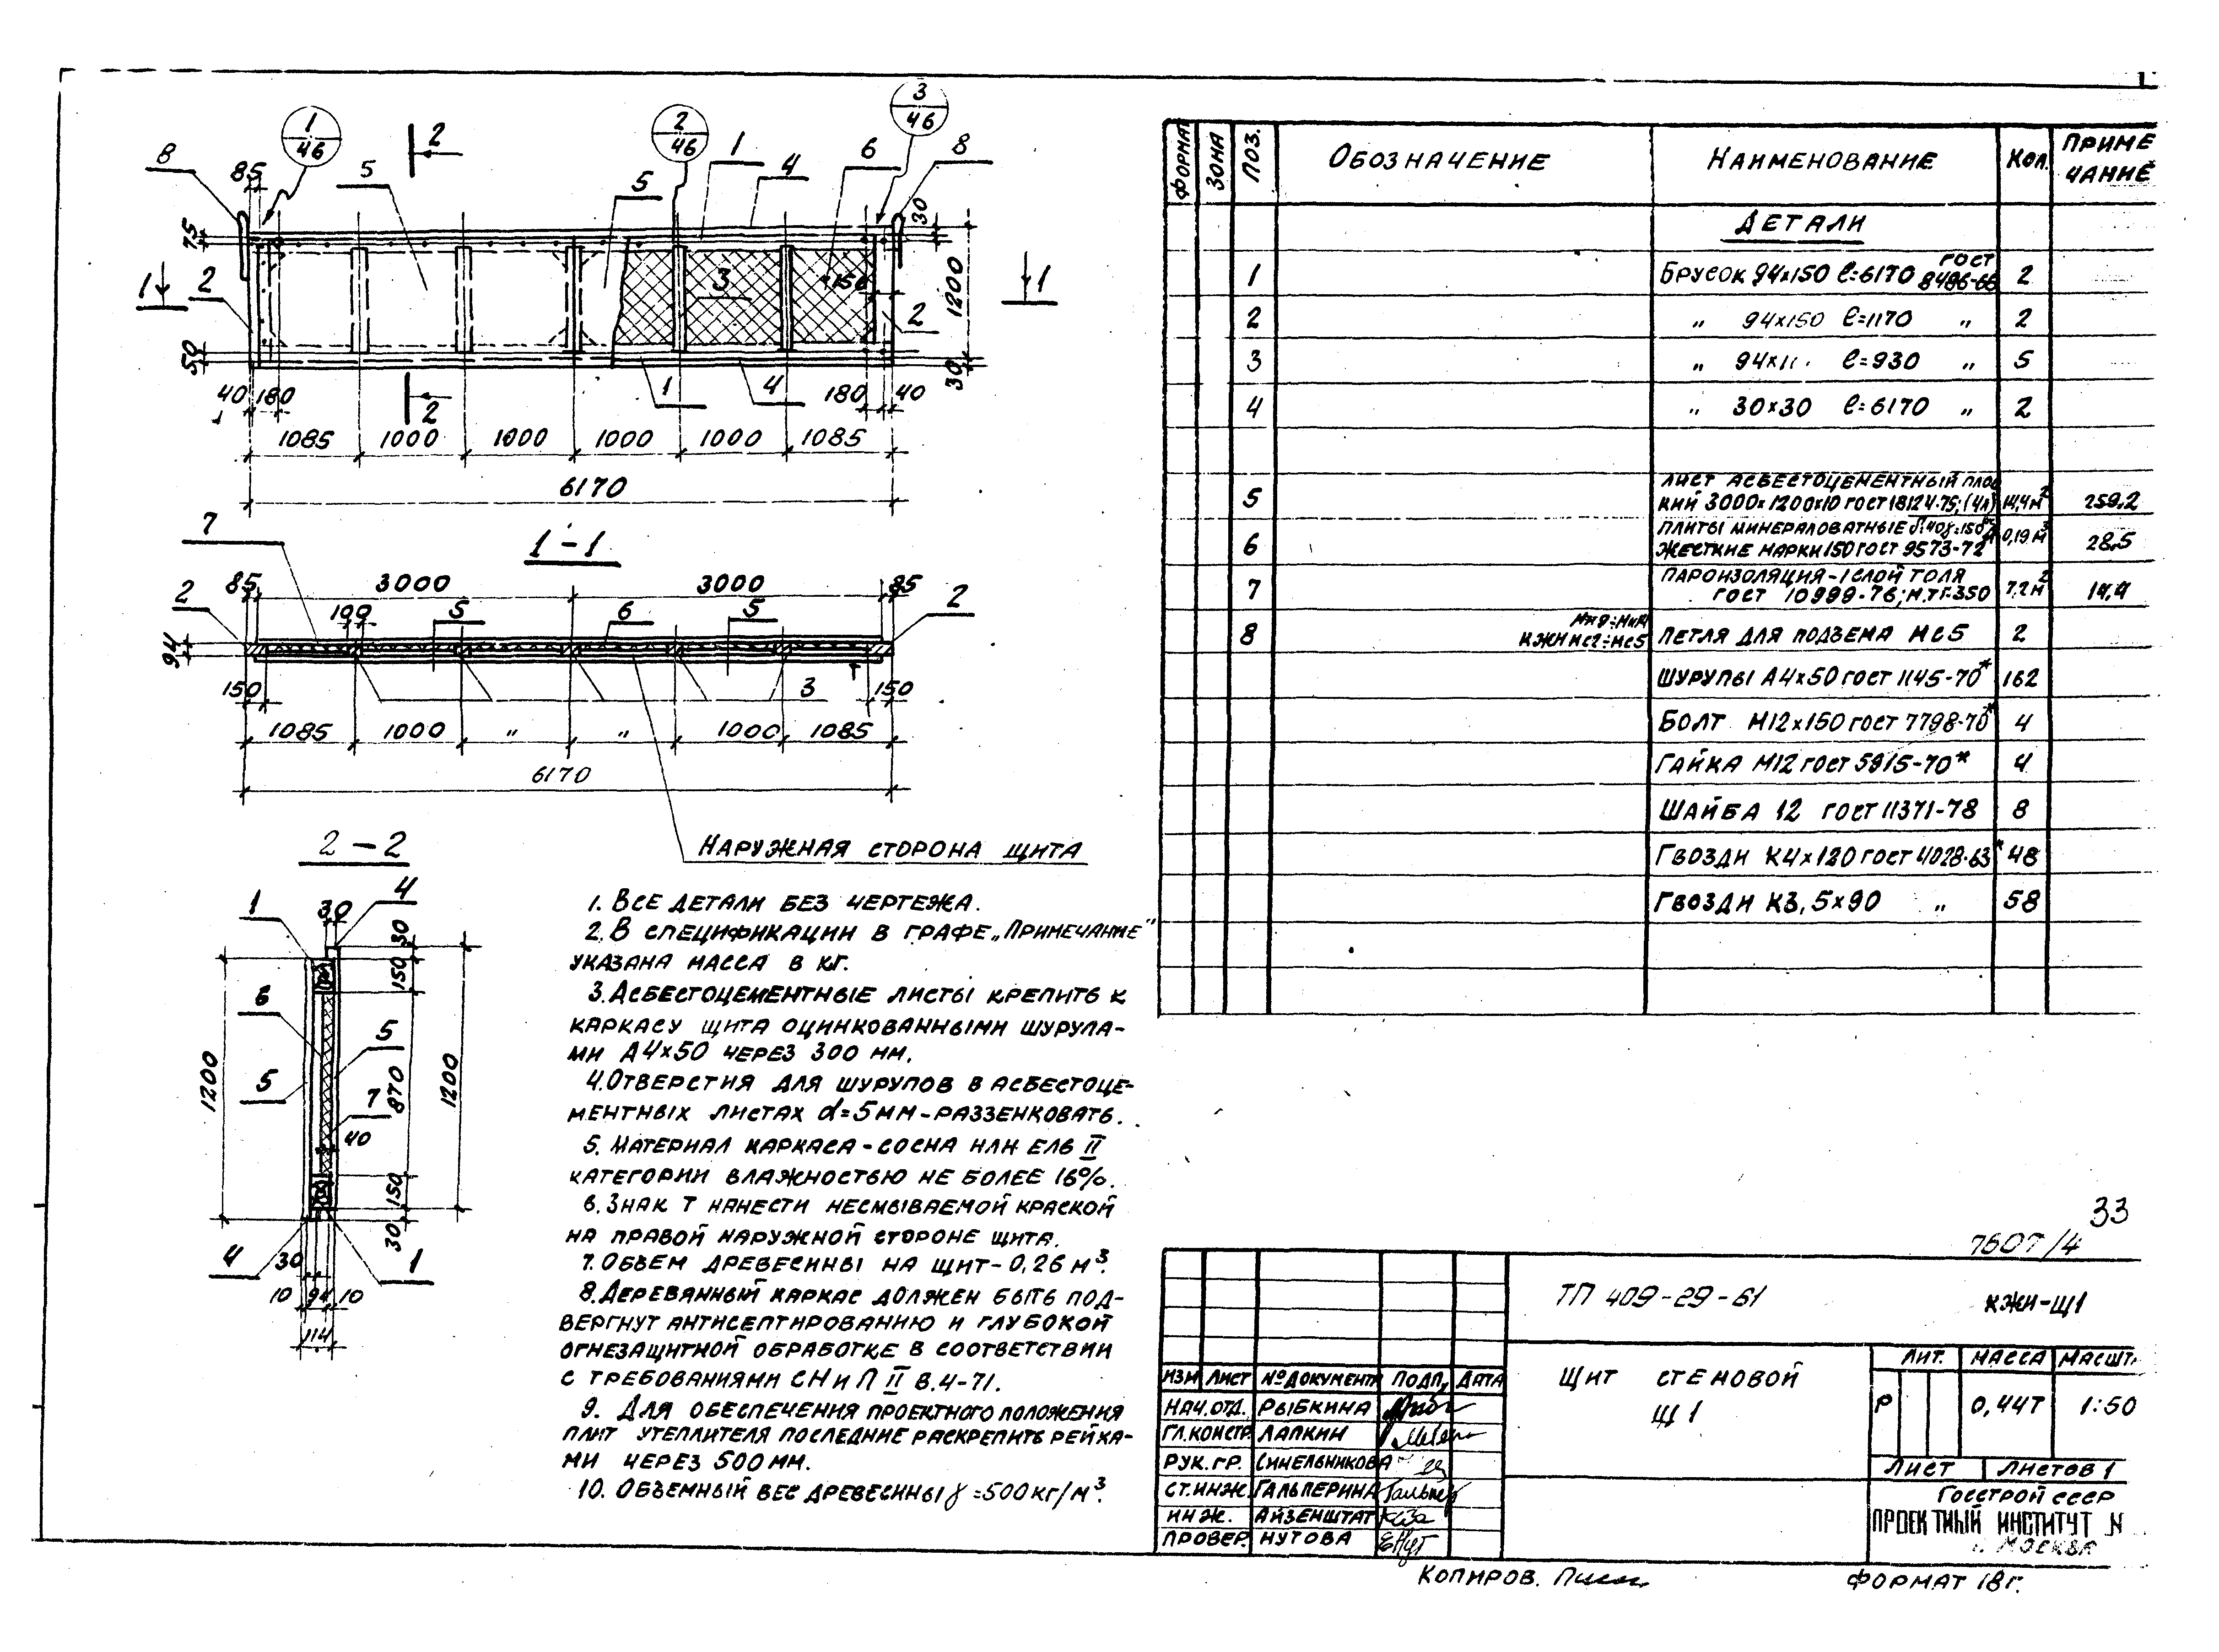 1
46
2
2
46
3
46
8
85
5
5
1
4
6
8
30
75
1
2
3
150
1200
2
1
50
40
180
2
1
4
180
40
30
1085
1000
1000
1000
1000
1085
6170
7
1-1
85
3000
3000
85
2
100
5
6
5
2
94
150
3
150
1085
1000
"
"
1000
1085
6170
НАРУЖНАЯ СТОРОНА ЩИТА
2-2
1
30
4
30
150
6
5
1200
5
7
870
1200
40
150
30
4
30
1
10
94
10
114
1. ВСЕ ДЕТАЛИ БЕЗ ЧЕРТЕЖА.
2. В СПЕЦИФИКАЦИИ В ГРАФЕ „ПРИМЕЧАНИЕ"
УКАЗАНА МАССА В КГ.
3. АСБЕСТОЦЕМЕНТНЫЕ ЛИСТЫ КРЕПИТЬ К
КАРКАСУ ЩИТА ОЦИНКОВАННЫМИ ШУРУПА-
МИ А4×50 ЧЕРЕЗ 300 ММ.
4. ОТВЕРСТИЯ ДЛЯ ШУРУПОВ В АСБЕСТОЦЕ-
МЕНТНЫХ ЛИСТАХ d=5ММ-РАЗЗЕНКОВАТЬ.
5. МАТЕРИАЛ КАРКАСА-СОСНА ИЛИ ЕЛЬ II
КАТЕГОРИИ ВЛАЖНОСТЬЮ НЕ БОЛЕЕ 16%.
6. ЗНАК Т НАНЕСТИ НЕСМЫВАЕМОЙ КРАСКОЙ
НА ПРАВОЙ НАРУЖНОЙ СТОРОНЕ ЩИТА.
7. ОБЪЕМ ДРЕВЕСИНЫ НА ЩИТ-0,26 М³.
8. ДЕРЕВЯННЫЙ КАРКАС ДОЛЖЕН БЫТЬ ПОД-
ВЕРГНУТ АНТИСЕПТИРОВАНИЮ И ГЛУБОКОЙ
ОГНЕЗАЩИТНОЙ ОБРАБОТКЕ В СООТВЕТСТВИИ
С ТРЕБОВАНИЯМИ СНиП II В.4-71.
9. ДЛЯ ОБЕСПЕЧЕНИЯ ПРОЕКТНОГО ПОЛОЖЕНИЯ
ПЛИТ УТЕПЛИТЕЛЯ ПОСЛЕДНИЕ РАСКРЕПИТЬ РЕЙКА-
МИ ЧЕРЕЗ 500 ММ.
10. ОБЪЕМНЫЙ ВЕС ДРЕВЕСИНЫ γ=500 КГ/М³.
ФОРМАТ ЗОНА ПОЗ. ОБОЗНАЧЕНИЕ НАИМЕНОВАНИЕ КОЛ. ПРИМЕ
ЧАНИЕ
ДЕТАЛИ
1 БРУСОК 94×150 ℓ=6170 ГОСТ 8486-66 2
2 " 94×150 ℓ=1170 " 2
3 " ℓ=930 " 5
4 " 30×30 ℓ=6170 " 2
ЛИСТ АСБЕСТОЦЕМЕНТНЫЙ ПЛОС
5 КИЙ 3000×1200×10 ГОСТ 18124-75; (4л) 14,4м² 259.2
ПЛИТЫ МИНЕРАЛОВАТНЫЕ
6 ЖЕСТКИЕ МАРКИ 150 ГОСТ 9573-72 0,19 м³ 28.5
ПАРОИЗОЛЯЦИЯ-1 СЛОЙ ТОЛЯ
7 ГОСТ 10999-76; М.ТГ-350 7.2 м² 14,4
8 КЖИ МС2÷МС5 ПЕТЛЯ ДЛЯ ПОДЪЕМА МС5 2
ШУРУПЫ А4×50 ГОСТ 1145-70* 162
БОЛТ М12×150 ГОСТ 7798-70* 4
ГАЙКА М12 ГОСТ 5915-70* 4
ШАЙБА 12 ГОСТ 11371-78 8
ГВОЗДИ К4×120 ГОСТ 4028-63* 48
ГВОЗДИ К3,5×90 " 58
33
7607/4
ТП 409-29-61
КЖИ-Щ1
ИЗМ ЛИСТ № ДОКУМЕНТА ПОДП. ДАТА
НАЧ.ОТД. РЫБКИНА
ГЛ.КОНСТР. ЛАПКИН
РУК.ГР. СИНЕЛЬНИКОВА
СТ.ИНЖ. ГАЛЬПЕРИНА
ИНЖ. АЙЗЕНШТАТ
ПРОВЕР. НУТОВА
ЩИТ СТЕНОВОЙ
Щ1
ЛИТ. МАССА МАСШТ.
Р 0,44Т 1:50
ЛИСТ ЛИСТОВ 1
ГОССТРОЙ СССР
ПРОЕКТНЫЙ ИНСТИТУТ №
г. МОСКВА
КОПИРОВ.
ФОРМАТ 18Г.